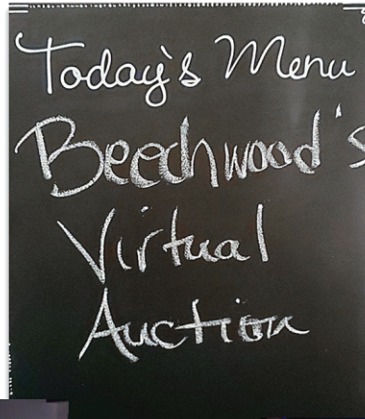 Today's Menu
Beechwood's
Virtual
Auction